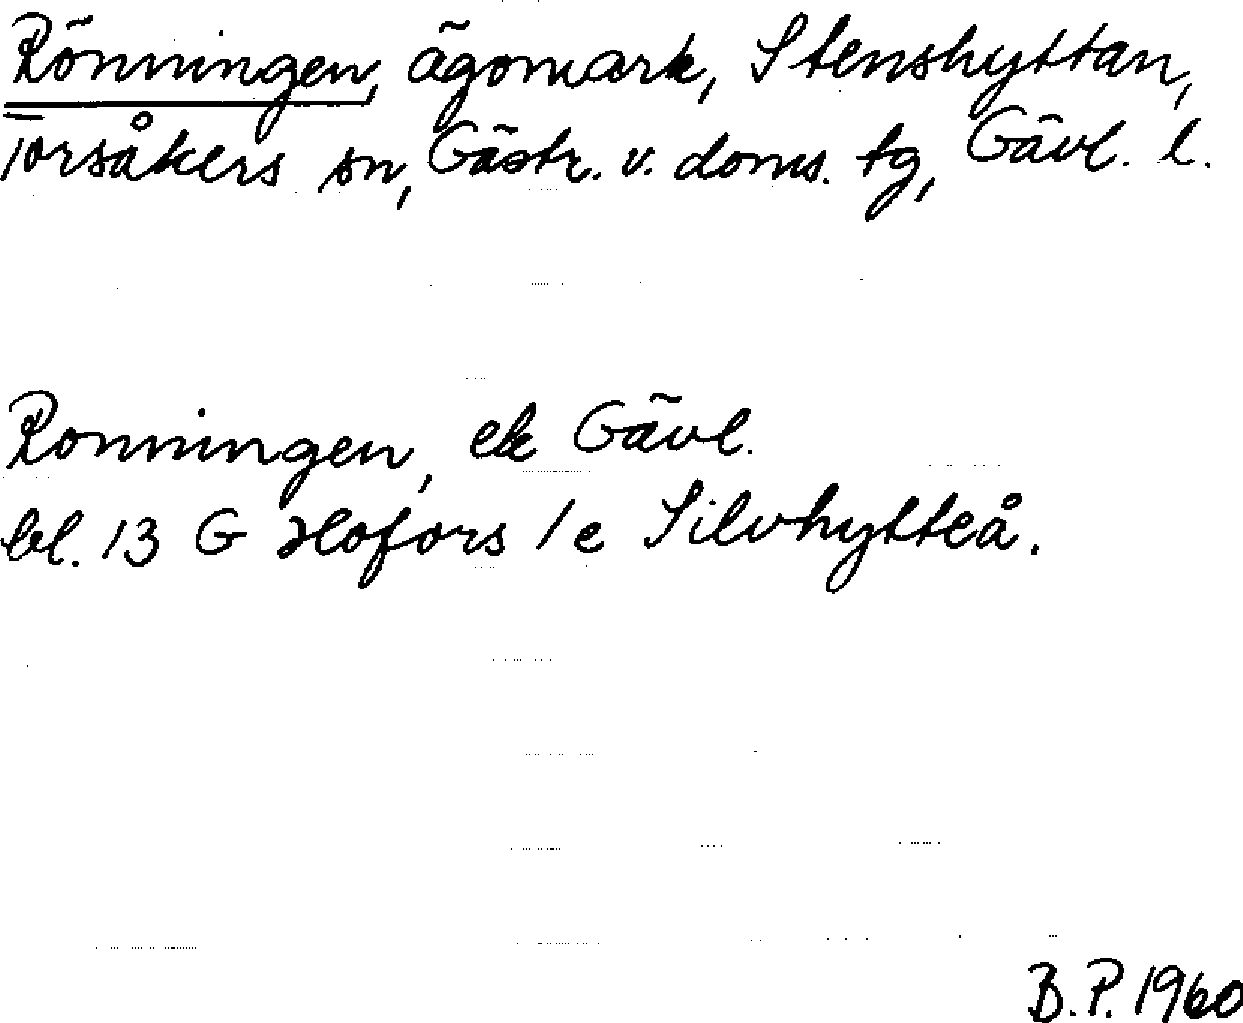 Rönningen, ägomark, Stenshyttan,
Torsåkers sn, Gästr. v. doms. tg, Gävl. l.
Ronningen, ek Gävl.
bl. 13 G Hofors 1 e Silvhytteå.
B.P. 1960